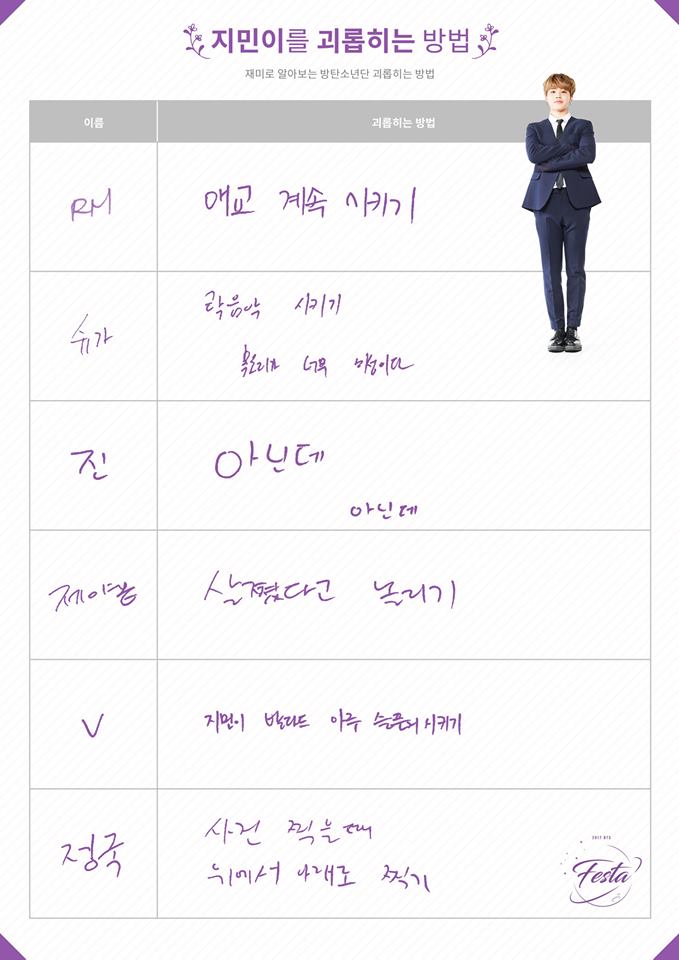 지민이를 괴롭히는 방법
재미로 알아보는 방탄소년단 괴롭히는 방법
이름 괴롭히는 방법
RM 애교 계속 시키기
슈가 락음악 시키기
목소리가 너무 미성이다
진 아닌데
아닌데
제이홉 살쪘다고 놀리기
V 지민이 발라드 아주 슬픈거 시키기
정국 사진 찍을때
위에서 아래로 찍기
2017 BTS
Festa